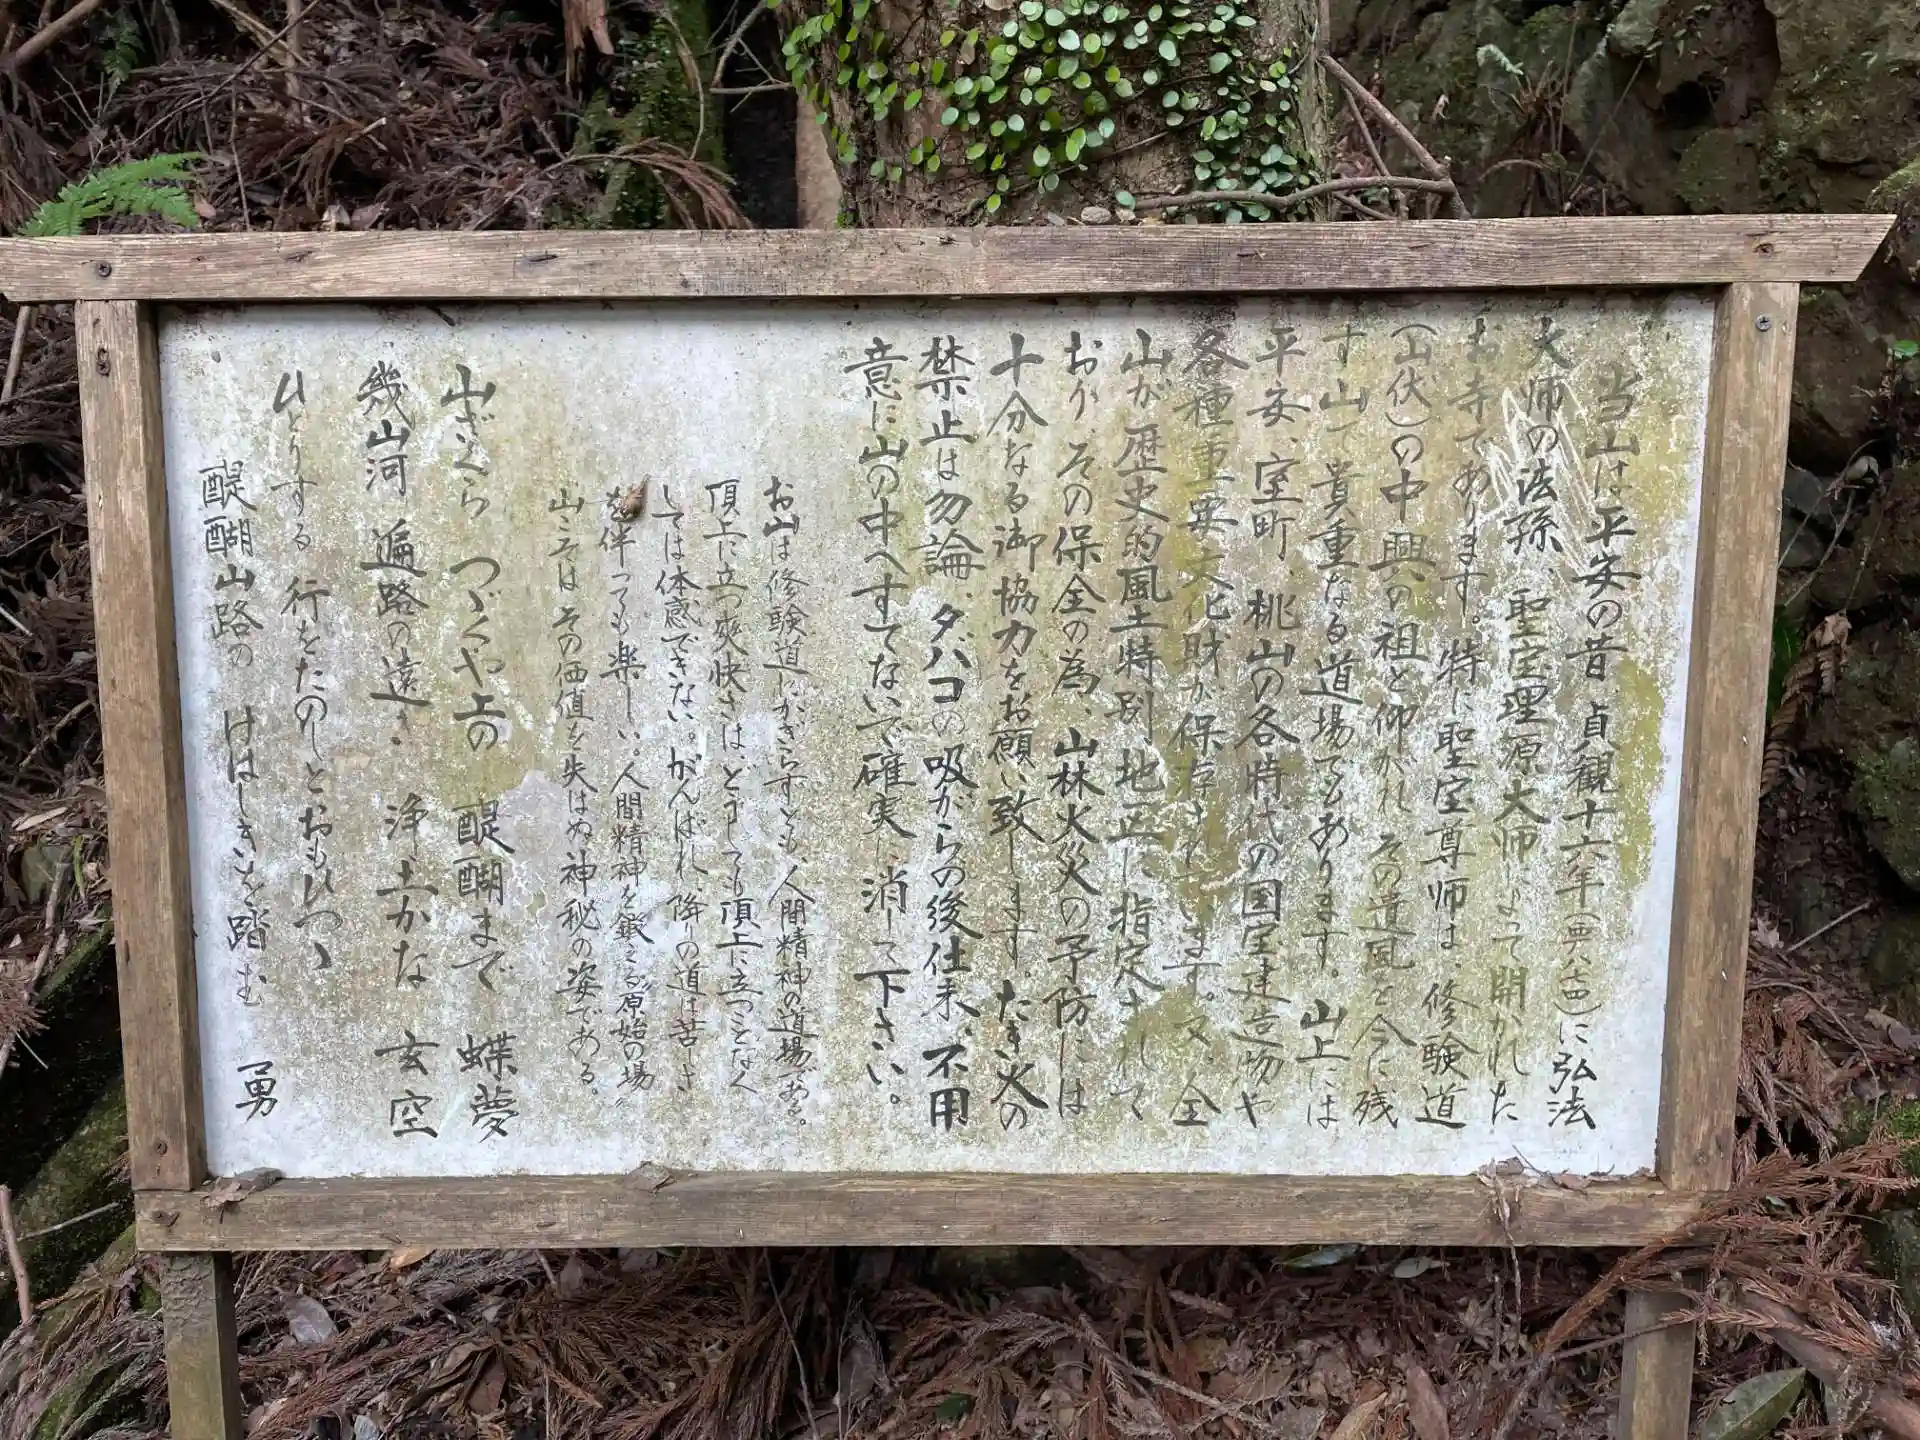 当山は平安の昔 貞観十六年(西暦八七四)に弘法
大師の法孫、聖宝理源大師によって開かれた
お寺であります。特に聖宝尊師は、修験道
(山伏)の中興の祖と仰がれ その遺風を今に残
す山で貴重なる道場でもあります。山上には
平安、室町、桃山の各時代の国宝建造物や
各種重要文化財が保存されています。又、全
山が歴史的風土特別地区に指定されて
おり、その保全の為、山林火災の予防には
十分なる御協力をお願い致します。たき火の
禁止は勿論、タバコの吸がらの後仕末、不用
意に山の中へすてないで確実に消して下さい。
お山は修験道にかぎらずとも、人間精神の道場である。
頂上に立つ爽快さは、どうしても頂上に立つことなく
しては体感できない。がんばれ、降りの道は苦しさ
を伴っても楽しい。人間精神を鍛える"原始の場"
山こそは その価値を失はぬ神秘の姿である。
山ざくら つゞくや上の 醍醐まで 蝶夢
幾山河 遍路の遠さ 浄土かな 玄空
ひとりする 行をたのしと おもひつゝ
醍醐山路の けはしきを踏む 勇